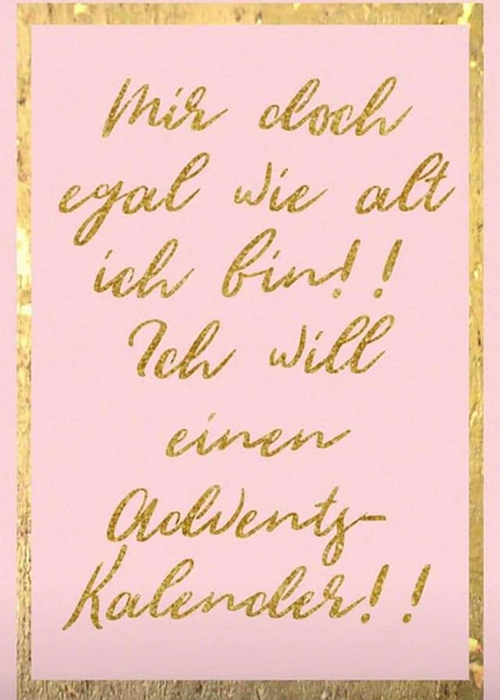 Mir doch
egal wie alt
ich bin!!
Ich will
einen
Advents-
Kalender!!